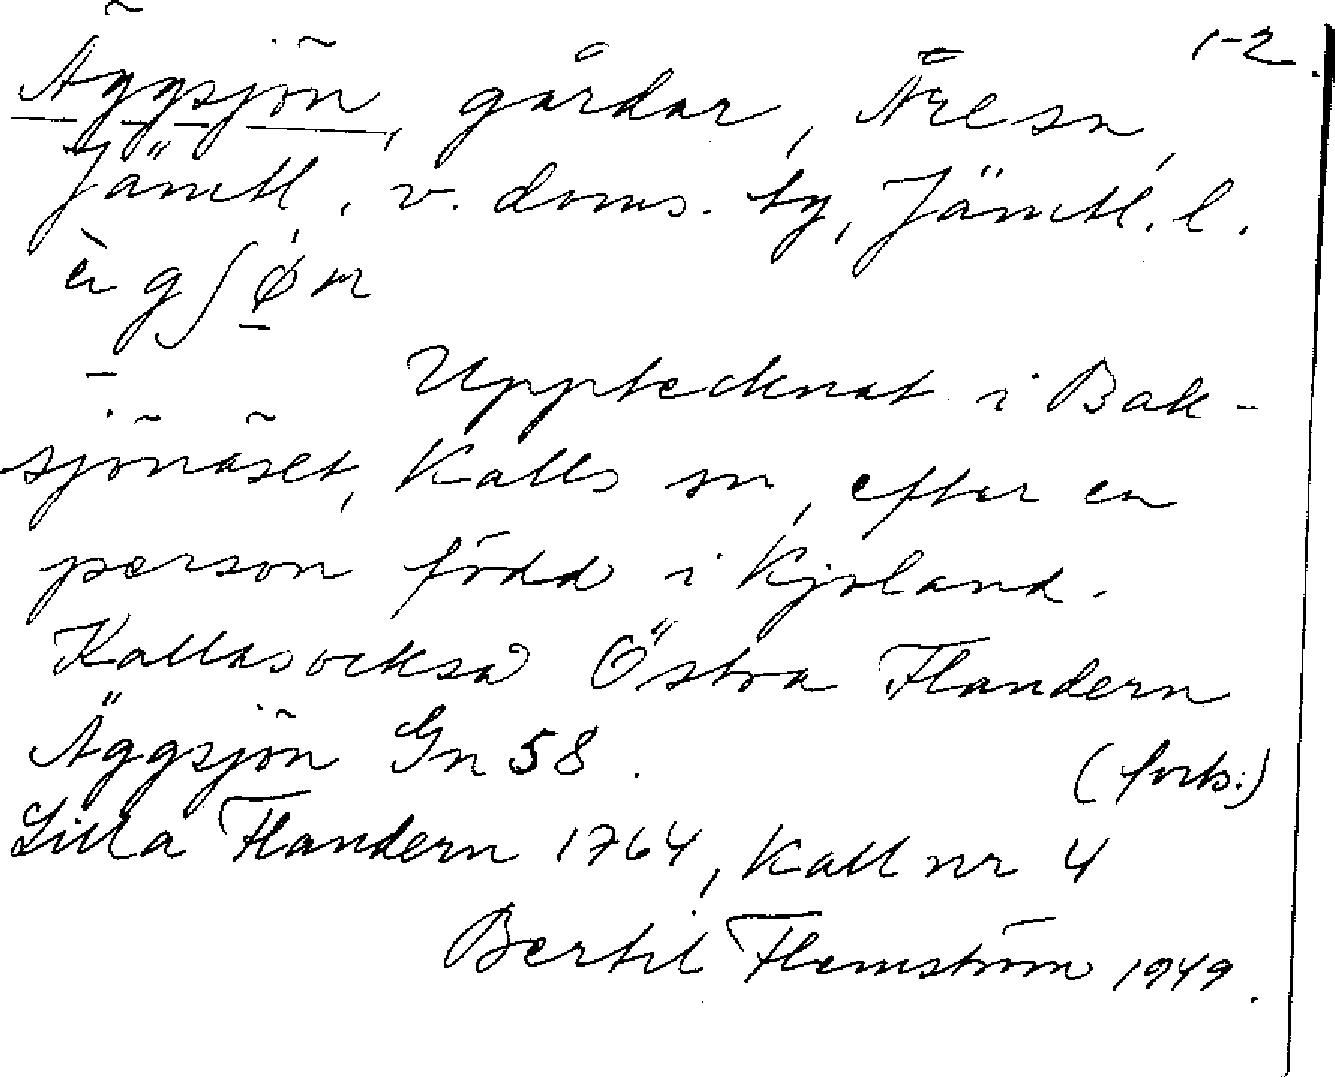 1-2.
Äggsjön, gårdar, Åre sn,
Jämtl. v. doms. tg, Jämtl. l.
Upptecknat i Bak-
sjönäset, Kalls sn, efter en
person född i Kjoland.
Kallas också Östra Flandern
Äggsjön Gn 58. (forts.)
Lilla Flandern 1764, Kall nr 4
Bertil Flemström 1949.